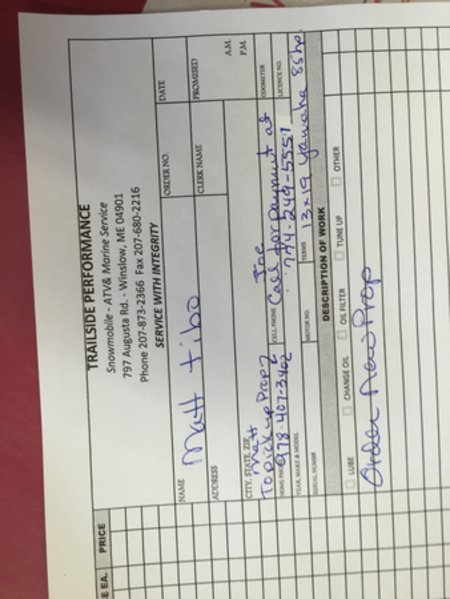 TRAILSIDE PERFORMANCE
Snowmobile - ATV& Marine Service
797 Augusta Rd. - Winslow, ME 04901
Phone 207-873-2366 Fax 207-680-2216
SERVICE WITH INTEGRITY
NAME Matt tibo ORDER NO. DATE
ADDRESS CLERK NAME PROMISED A.M.
P.M.
CITY, STATE, ZIP
Matt Joe
To pick up Prop Call for payment at
HOME PHONE 978-407-3402 CELL PHONE 774-249-5557 ODOMETER
YEAR, MAKE & MODEL MOTOR NO. TERMS 13x19 yamaha 85hp LICENCE NO.
SERIAL NUMBER
DESCRIPTION OF WORK
LUBE CHANGE OIL OIL FILTER TUNE UP OTHER
Order New Prop
E EA. PRICE